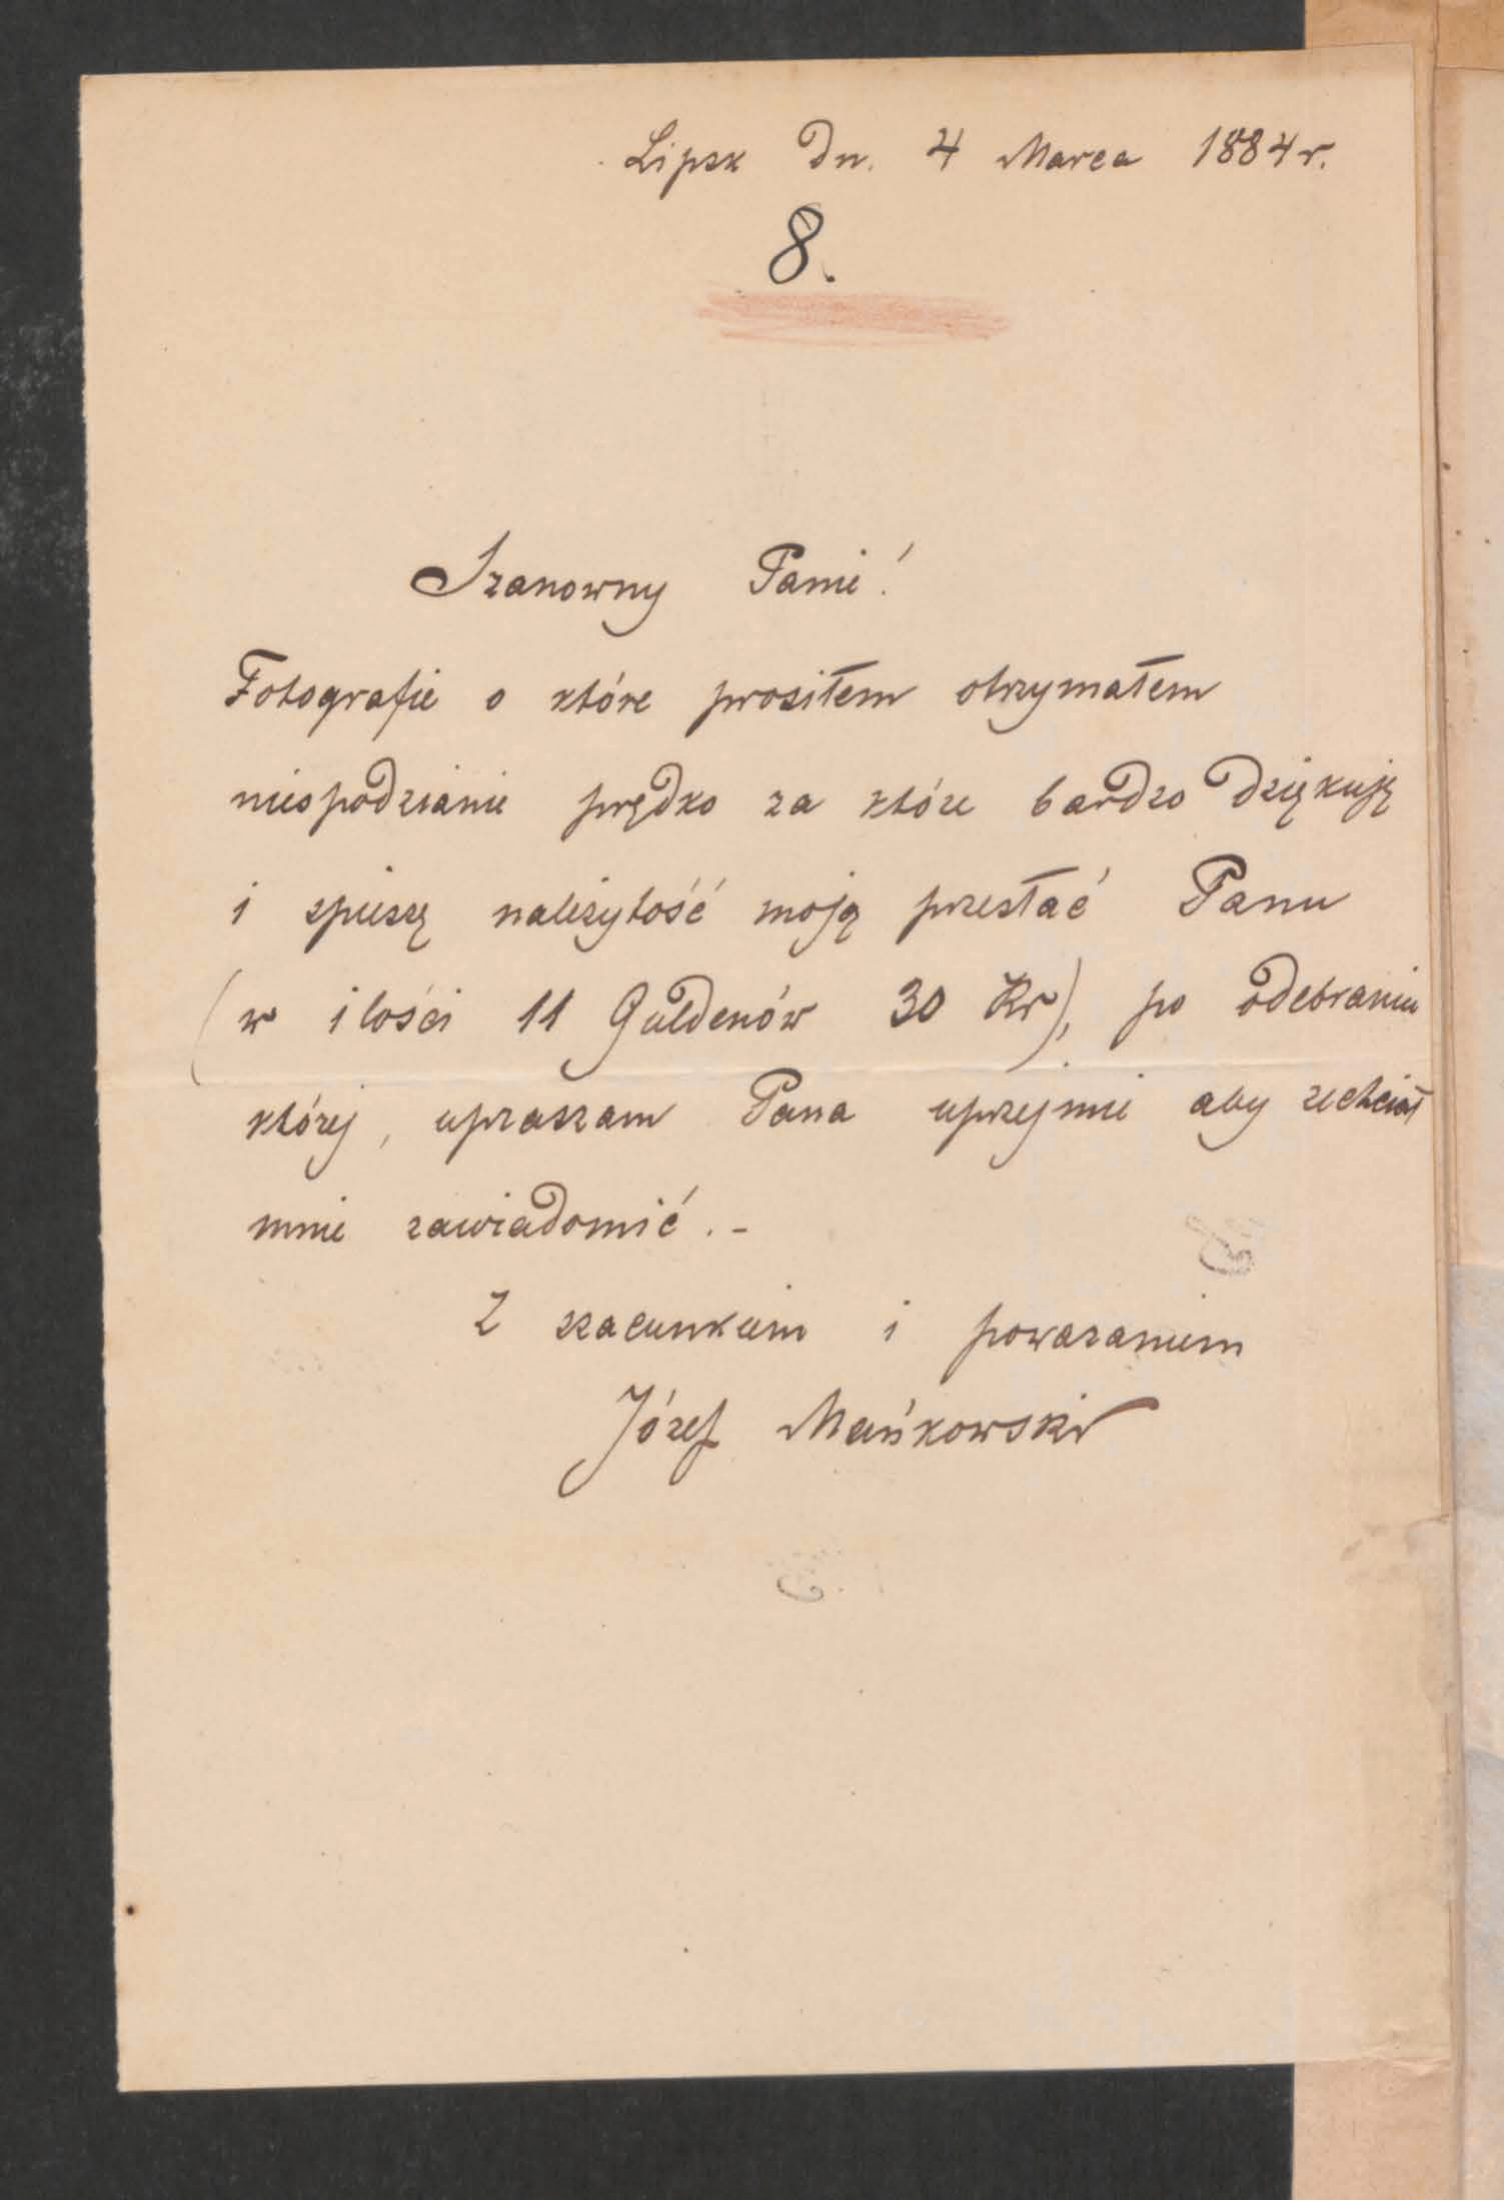 Lipsk dn. 4 Marca 1884 r.
8.
Szanowny Panie!
Fotografie o które prosiłem otrzymałem
niespodzianie prędko za które bardzo dziękuję
i spieszę należytość moją przesłać Panu
(w ilości 11 Guldenów 30 Kr), po odebraniu
której, upraszam Pana uprzejmie aby zechciał
mnie zawiadomić. -
Z szacunkiem i poważaniem
Józef Mańkowski